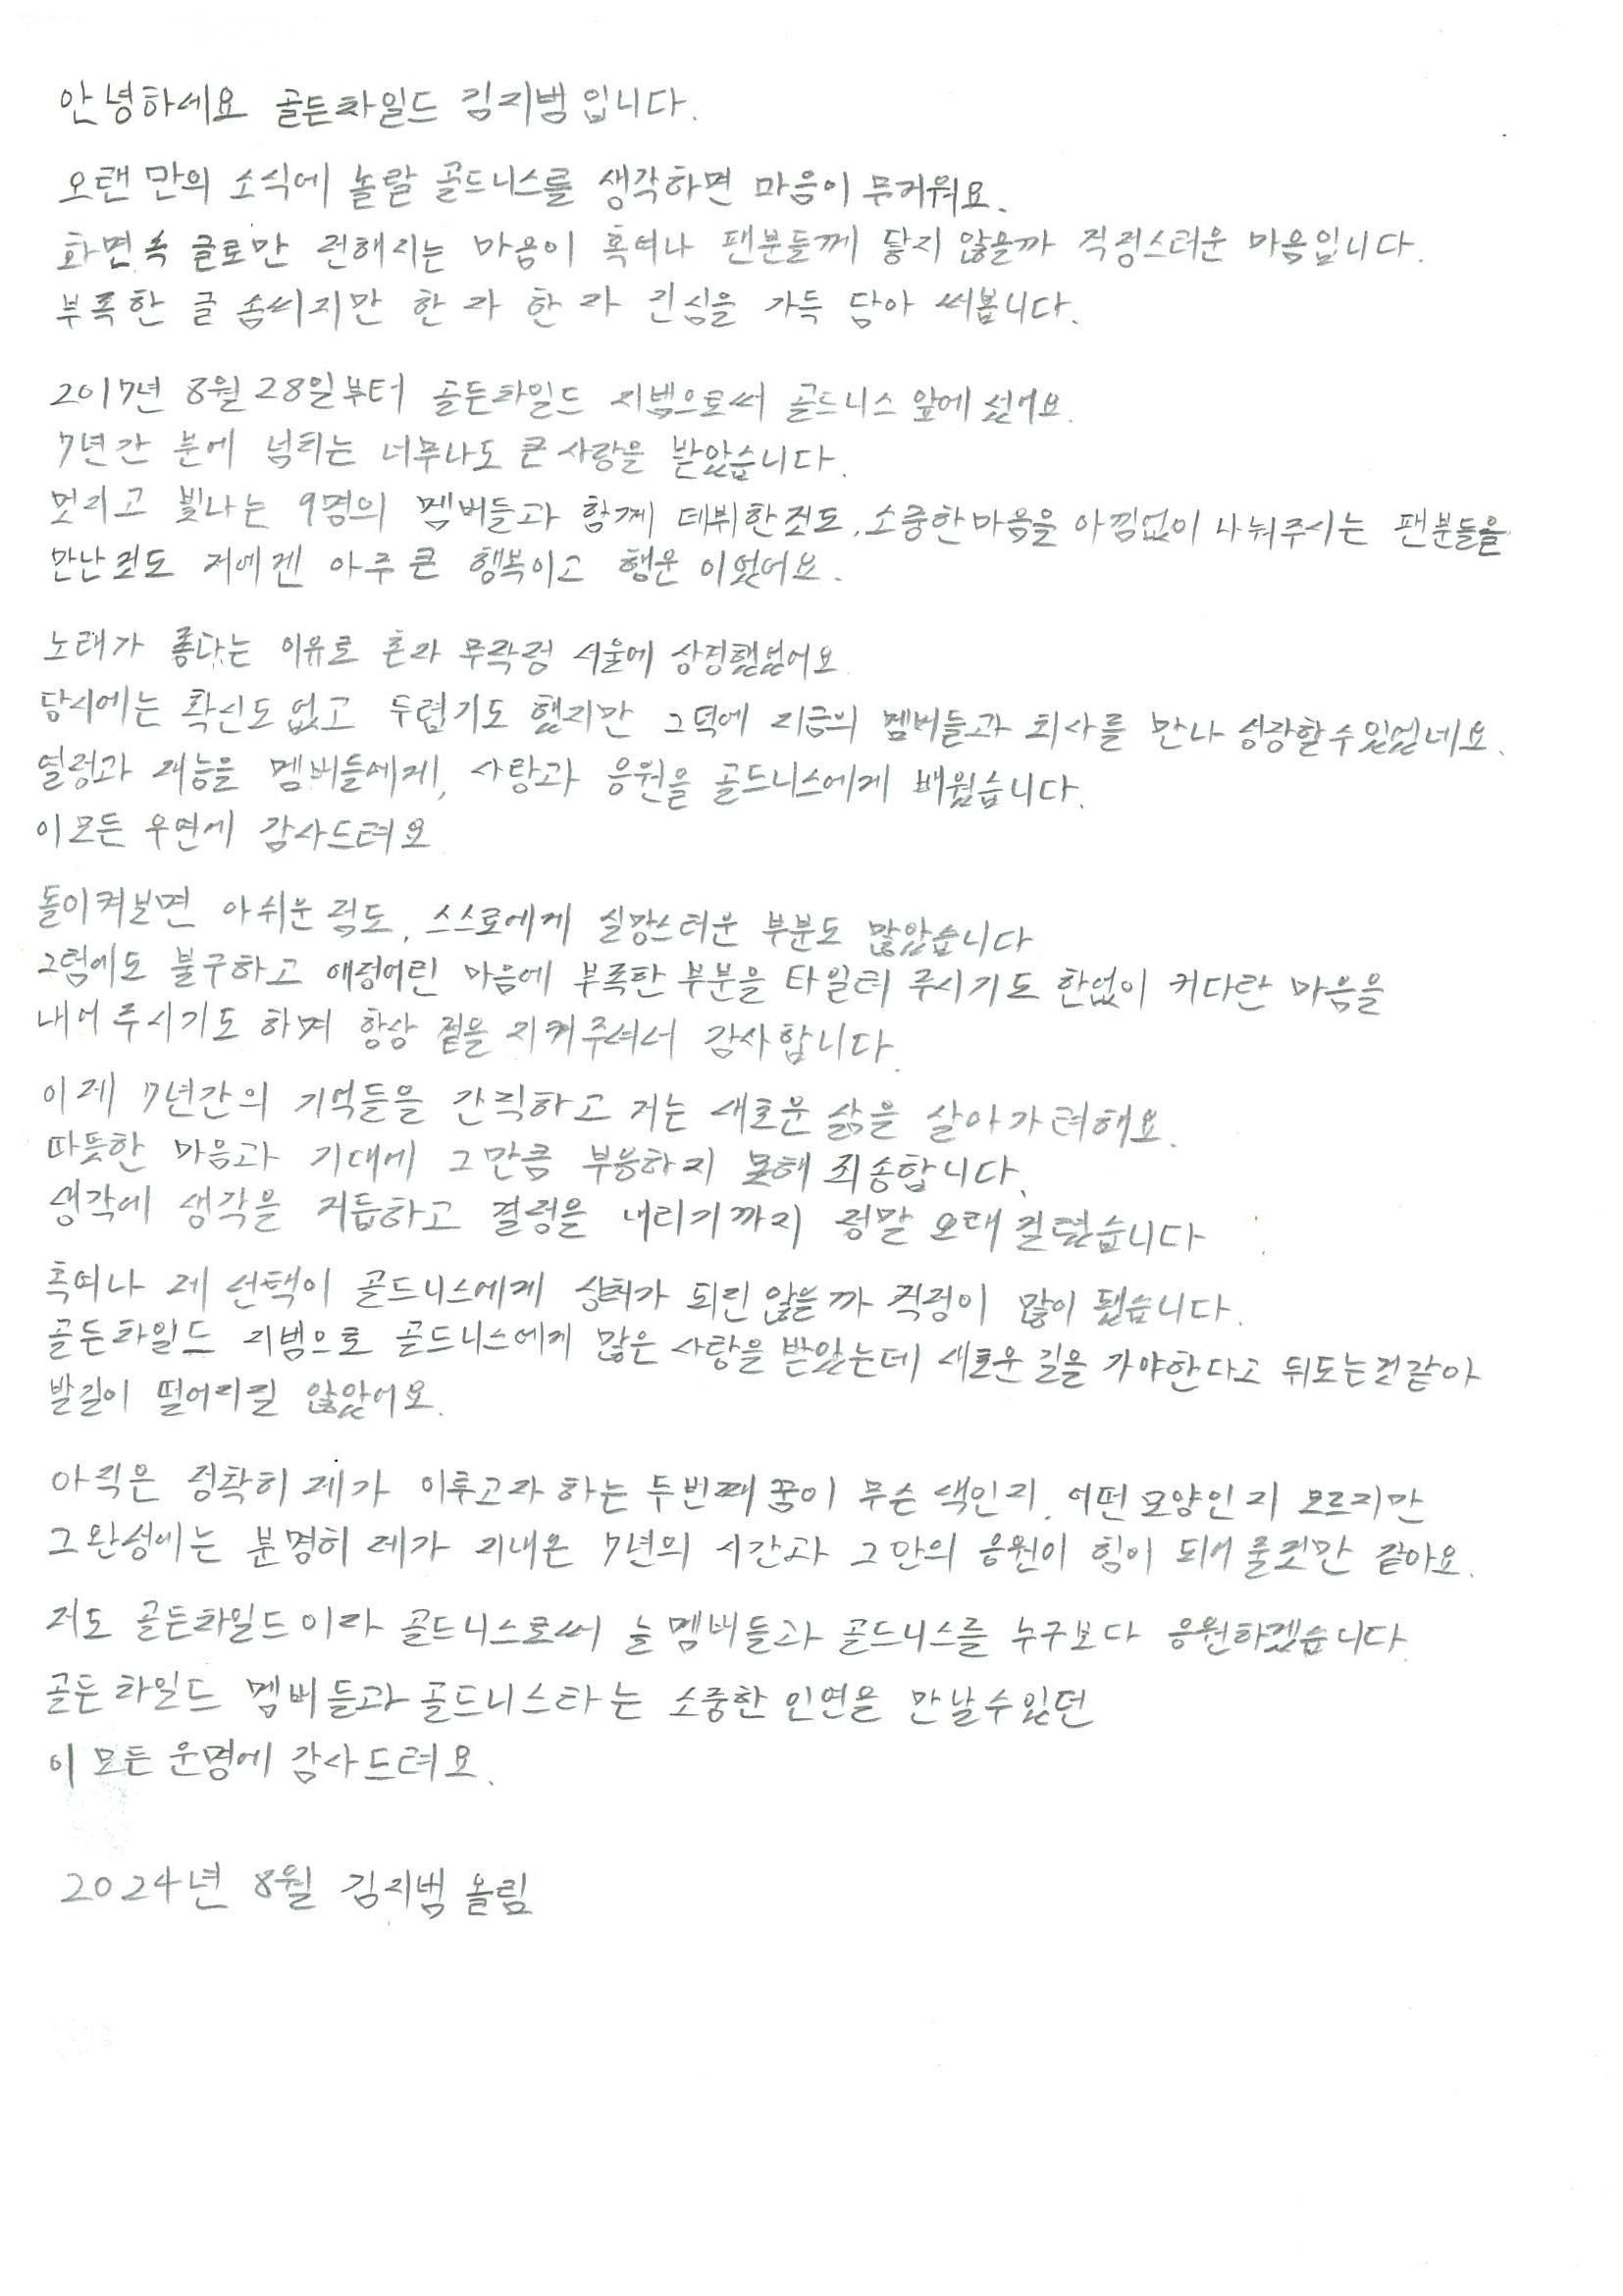 안녕하세요 골든차일드 김지범입니다.
오랜 만의 소식에 놀랄 골드니스를 생각하면 마음이 무거워요.
화면 속 글로만 전해지는 마음이 혹여나 팬분들께 닿지 않을까 걱정스러운 마음입니다.
부족한 글 솜씨지만 한 자 한 자 진심을 가득 담아 써봅니다.
2017년 8월 28일부터 골든차일드 지범으로써 골드니스 앞에 섰어요.
7년간 분에 넘치는 너무나도 큰 사랑을 받았습니다.
멋지고 빛나는 9명의 멤버들과 함께 데뷔한것도, 소중한마음을 아낌없이 나눠주시는 팬분들을
만난것도 저에겐 아주 큰 행복이고 행운 이었어요.
노래가 좋다는 이유로 혼자 무작정 서울에 상경했었어요
당시에는 확신도 없고 두렵기도 했지만 그 덕에 지금의 멤버들과 회사를 만나 성장할수있었네요.
열정과 재능을 멤버들에게, 사랑과 응원을 골드니스에게 배웠습니다.
이 모든 우연에 감사드려요
돌이켜보면 아쉬운 점도, 스스로에게 실망스러운 부분도 많았습니다
그럼에도 불구하고 애정어린 마음에 부족한 부분을 타일러 주시기도 한없이 커다란 마음을
내어 주시기도 하며 항상 곁을 지켜주셔서 감사합니다.
이제 7년간의 기억들을 간직하고 저는 새로운 삶을 살아가려해요.
따뜻한 마음과 기대에 그만큼 부응하지 못해 죄송합니다.
생각에 생각을 거듭하고 결정을 내리기까지 정말 오래 걸렸습니다
혹여나 제 선택이 골드니스에게 상처가 되진 않을까 걱정이 많이 됐습니다.
골든차일드 지범으로 골드니스에게 많은 사랑을 받았는데 새로운 길을 가야한다고 뒤도는것같아
발길이 떨어지질 않았어요.
아직은 정확히 제가 이루고자 하는 두번째 꿈이 무슨 색인지, 어떤 모양인지 모르지만
그 완성에는 분명히 제가 지내온 7년의 시간과 그 안의 응원이 힘이 되어 줄것만 같아요.
저도 골든차일드이자 골드니스로써 늘 멤버들과 골드니스를 누구보다 응원하겠습니다.
골든차일드 멤버들과 골드니스라는 소중한 인연을 만날수있던
이 모든 운명에 감사드려요.
2024년 8월 김지범 올림